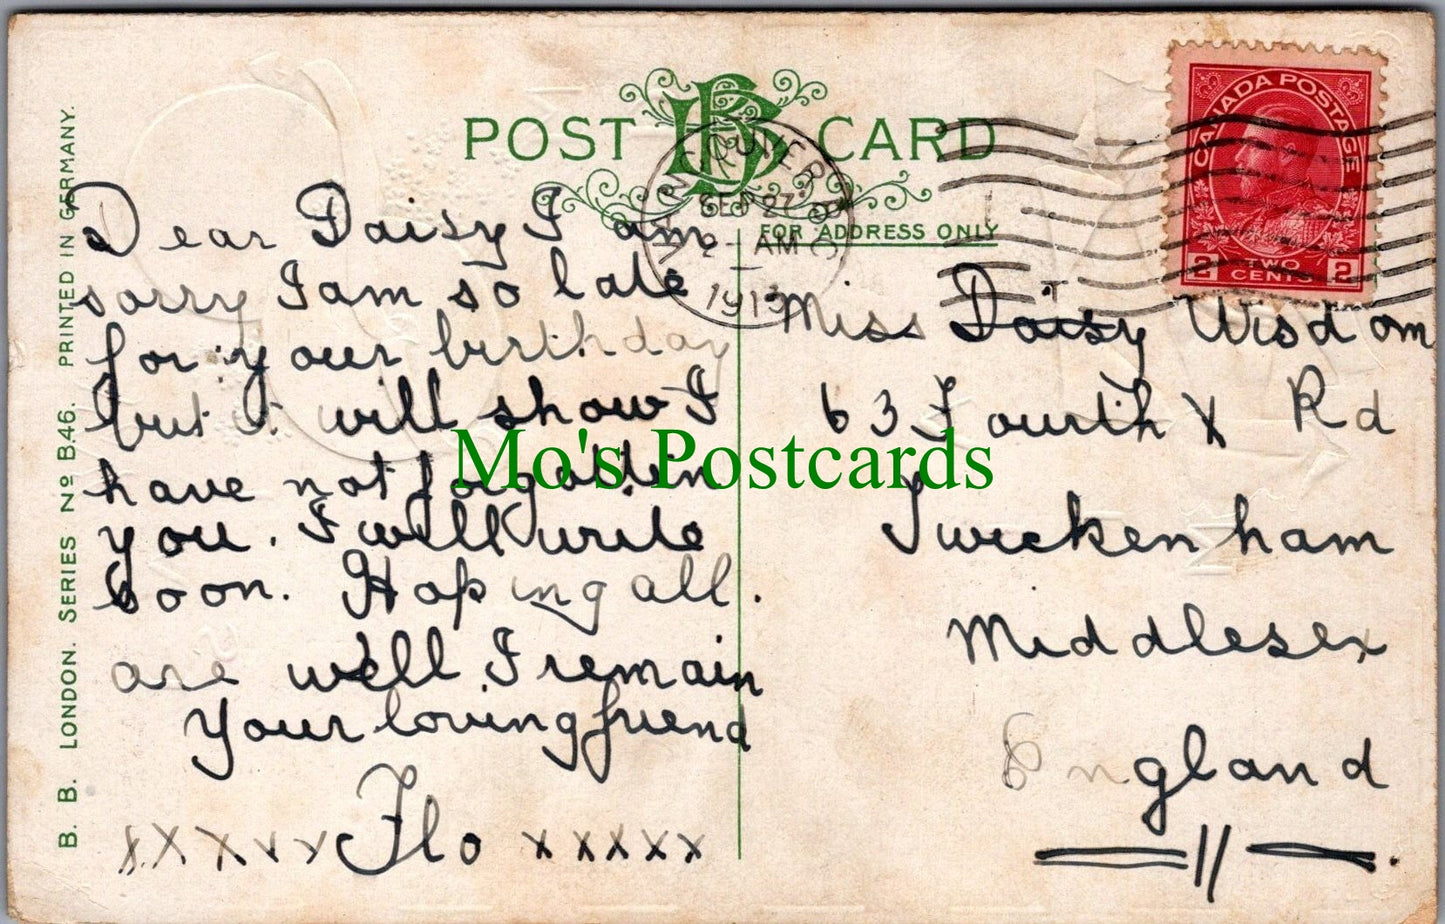 B. B. LONDON. SERIES No B.46. PRINTED IN GERMANY.
POST CARD
BB
FOR ADDRESS ONLY
VANCOUVER
SEP 27
2 - AM
1913
CANADA POSTAGE
2 TWO CENTS 2
Dear Daisy I am
sorry I am so late
for your birthday
but it will show I
have not forgotten
you. I will write
soon. Hoping all.
are well I remain
Your loving friend
xxxxx Flo xxxxx
Miss Daisy Wisdom
63 Fourth X Rd
Twickenham
Middlesex
England
Mo's Postcards